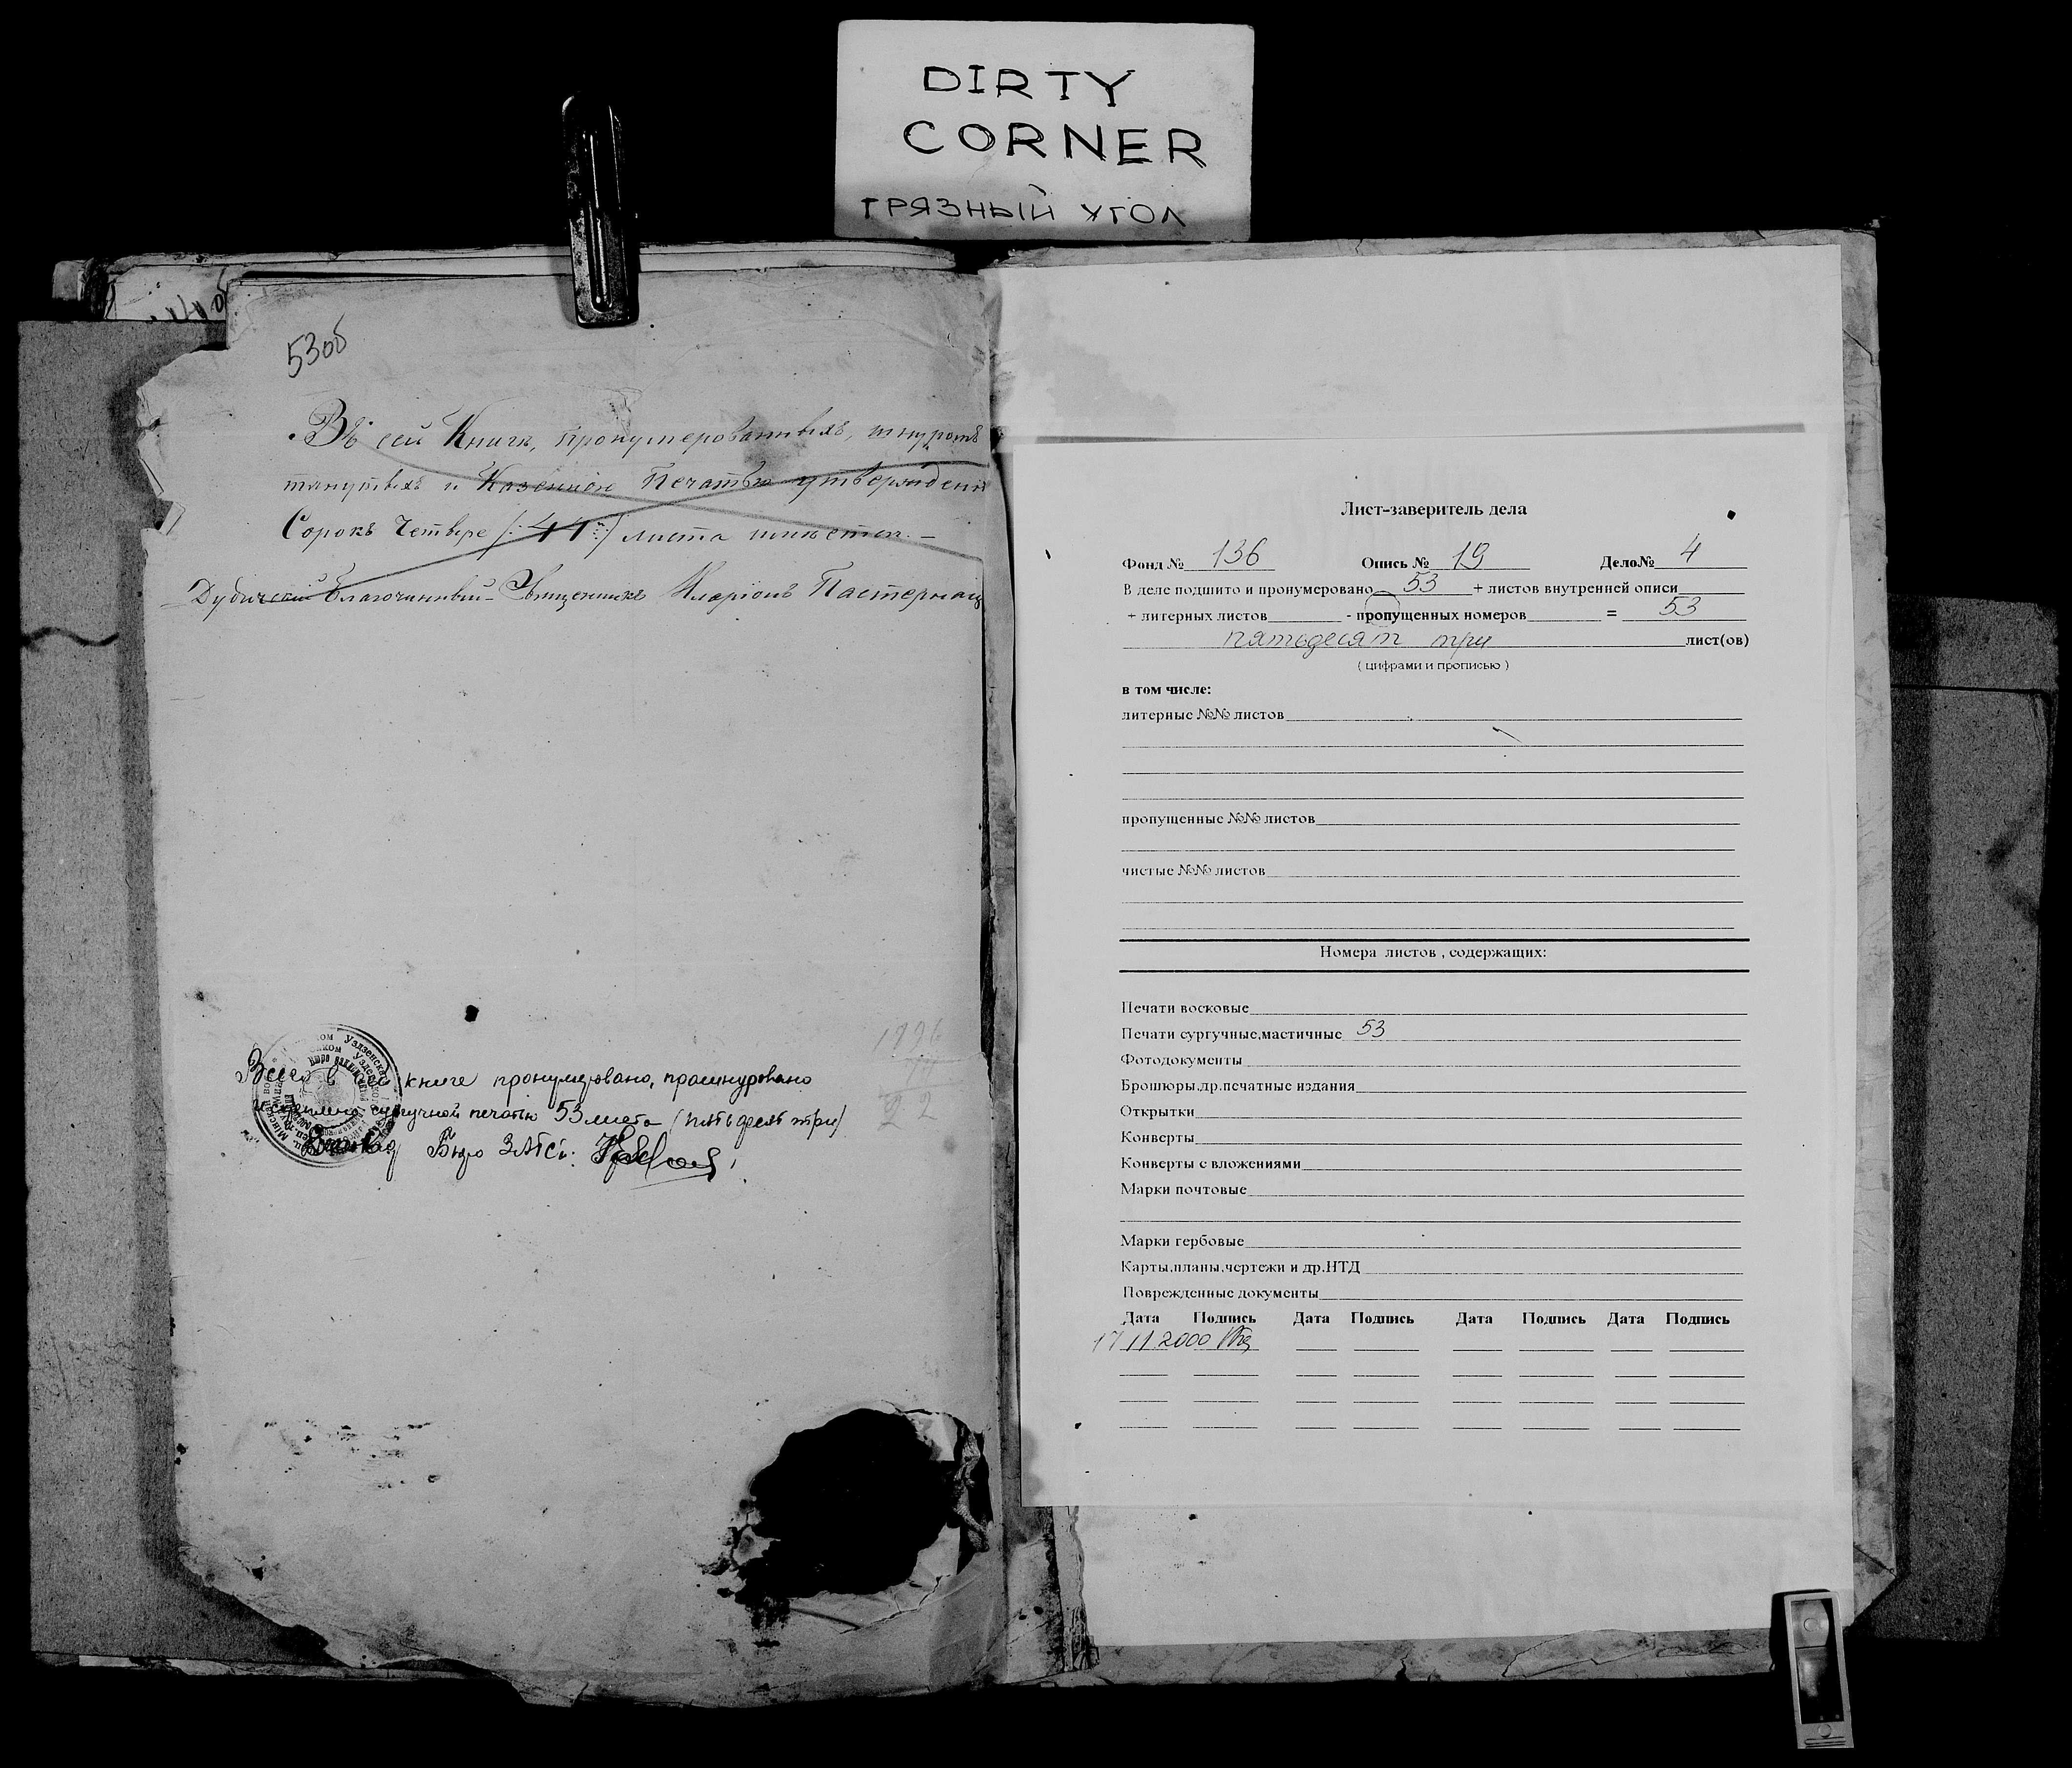 DIRTY
CORNER
ГРЯЗНЫЙ УГОЛ
53об
Въ сей Книге, пронумерованныхъ, шнуромъ
тянутыхъ и Казенною Печатью утвержденн
Сорокъ Четыре /:44:/ листа
Благочинный Священникъ Иларіонъ Пастернац
Всего в книге пронумеровано, прошнуровано
сургучной печатью 53 листа (пятьдесят три)
Бюро ЗАГС:
Лист-заверитель дела
Фонд № 136 Опись № 19 Дело№ 4
В деле подшито и пронумеровано 53 + листов внутренней описи
+ литерных листов - пропущенных номеров = 53
пятьдесят три лист(ов)
( цифрами и прописью )
в том числе:
литерные №№ листов
пропущенные №№ листов
чистые №№ листов
Номера листов , содержащих:
Печати восковые
Печати сургучные,мастичные 53
Фотодокументы
Брошюры,др.печатные издания
Открытки
Конверты
Конверты с вложениями
Марки почтовые
Марки гербовые
Карты,планы,чертежи и др.НТД
Поврежденные документы
Дата Подпись Дата Подпись Дата Подпись Дата Подпись
17 11 2000